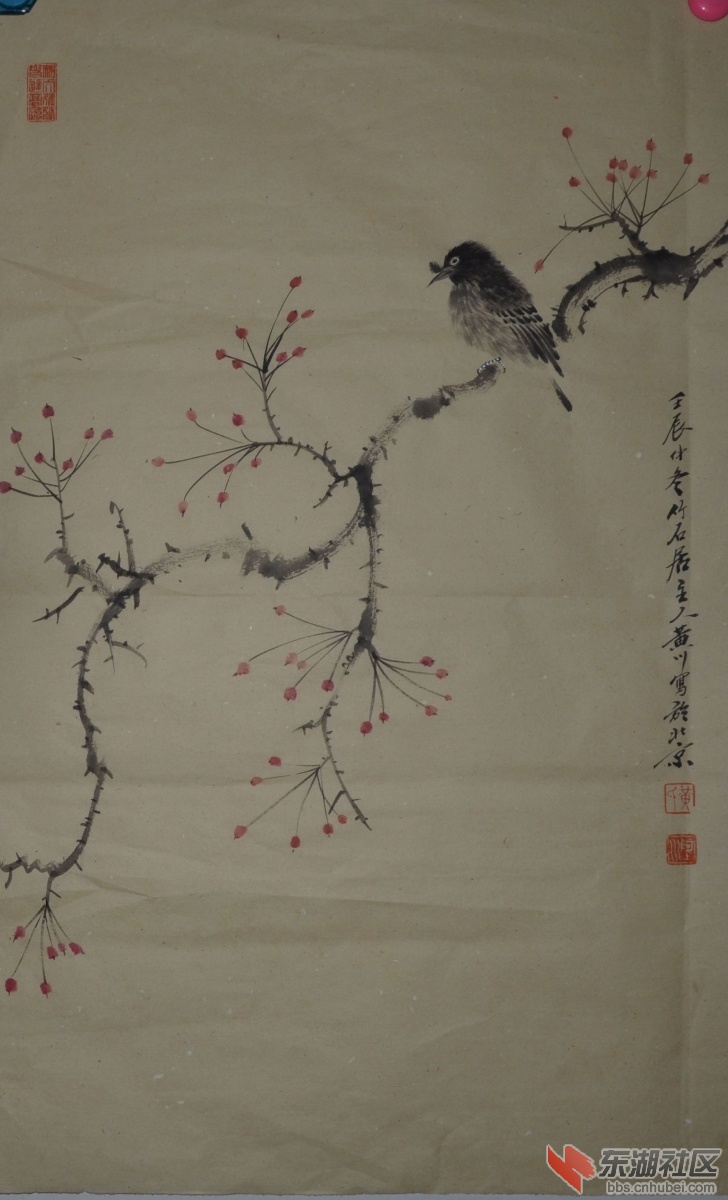 壬辰仲冬竹石居主人黄川寫於北京
东湖社区
bbs.cnhubei.com